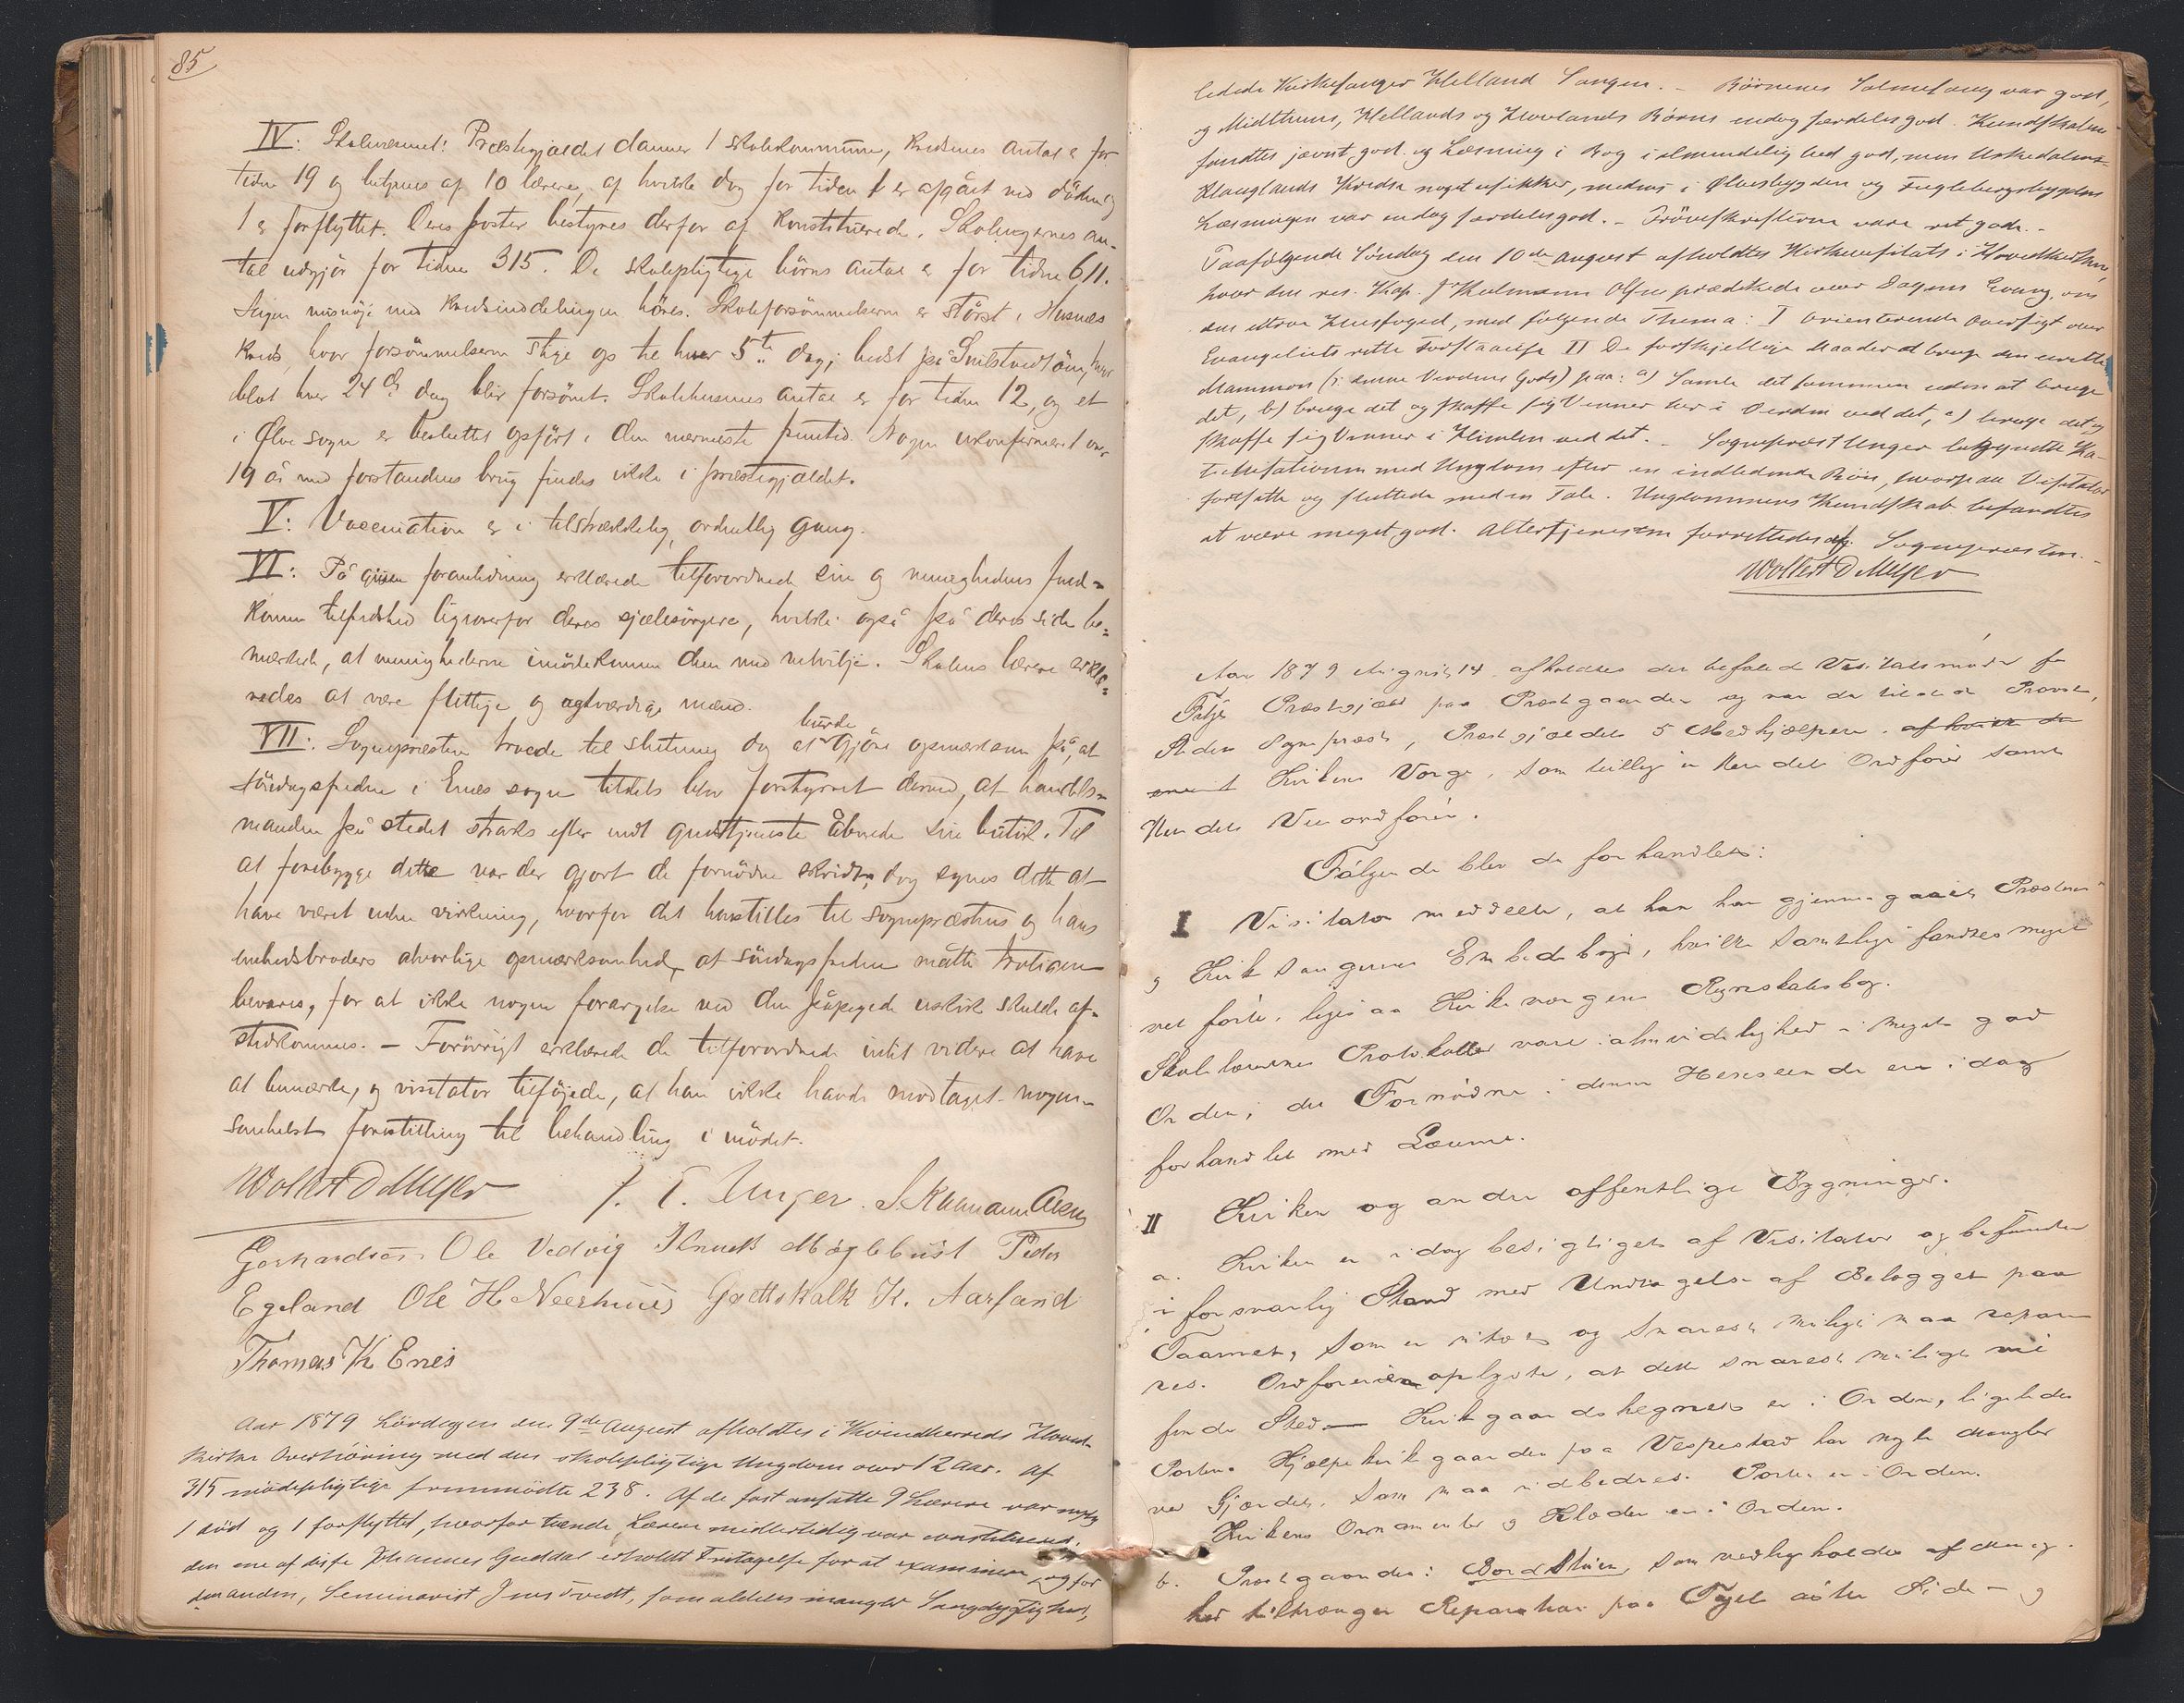 85
IV: Skolevæsenet: Præstegjældet danner 1 skolekommune, kredsenes antal er for
tiden 19 og betjenes af 10 lærere, af hvilke dog for tiden 1 er afgået ved döden og
1 er forflyttet. Deres poster bestyres derfor af konstituerede. Skolingernes an-
tal udgjör for tiden 315. De skolepligtige börns antal er for tiden 611.
Ingen misnöje med kredsinddelingen höres. Skoleforsömmelserne er störst i Husnæs
kreds, hvor forsömmelserne stige op til hver 5te dag; bedst på Snilstveitöen, hvor
blot hver 24de dag blir forsömt. Skolehusenes antal er for tiden 12, og et
i Ölve sogn er besluttet opfört i den nærmeste fremtid. Nogen ukonfirmeret over
19 år med forstandens brug findes ikke i præstegjældet.
V: Vaccination er i tilstrækkelig, ordentlig gang.
VI: På given foranledning erklærede tilforordnede sin og menighedens fuld-
komne tilfredshed ligeoverfor deres sjælesörgere, hvilke også på deres side be-
mærkede, at menighederne imödekommer dem med velvilje. Skolens lærere erklæ-
redes at være flittige og agtværdige mænd.
VII: Sognepræsten troede til slutning dog at burde gjöre opmærksom på, at
söndagsfreden i Enæs sogn tildels blev forstyrret derved, at handels-
manden på stedet straks efter endt gudstjeneste åbnede sin butik. Til
at forebygge dette var der gjort de fornödne skridt, dog synes dette at
have været uden virkning, hvorfor det henstilles til sognepræstens og hans
embedsbroders alvorlige opmærksomhed, at söndagsfreden måtte trolig
bevares, for at ikke nogen forargelse ved den påpegede uskik skulde af-
stedkommes. – Forövrigt erklærede de tilforordnede intet videre at have
at bemærke, og visitator tilföjede, at han ikke havde modtaget nogen-
somhelst forestilling til behandling i mödet.
Wollert D Meyer J. T. Unger. J. Kulmann Olsen
Gerhardsen Ole Vedvig Knud Møglebust Peder
Egeland Ole H Neerhuus Gottskalk K. Aarsand
Thomas K Enes
Aar 1879 Lördagen den 9de August afholdtes i Kvindherreds Hoved-
kirke Overhöring med den skolepligtige Ungdom over 12 Aar. Af
315 mödepligtige fremmödte 238. Af de fast ansatte 9 Lærere var nylig
1 död og 1 forflyttet, hvorfor tvende Lærere midlertidig var constituered.
den ene af disse Johannes Guddal erholdt Fritagelse for at examinere og for
den anden, Seminarist Jens Tvedt, som aldeles mangler Sangdygtighed,
ledede Kirkesanger Helland Sangen. – Börnenes Salmesang var god,
og Midtthuns, Hellands og Hovlands Börns endog særdeles god. Kundskaben
fandtes jævnt god og Læsning i Bog i almindelig hed god, men Uskedalens
Klauglands Kredse noget usikker, medens i Ølvesbygden og Fuglebergsbygdens
Læsningen var endog særdeles god. – Pröveskrifterne vare ret gode. –
Paafølgende Söndag den 10de August afholdtes Kirkevisitats i Hovedkirken,
hvor den res. Kap. J Kulmann Olsen prædikede over Dagens Evang. om
den utroe Huusfoged, med følgende Thema: I orienterende Oversigt over
Evangeliets rette Forstaaelse II De forskjellige Maader at bruge den urette
Mammon (: denne Verdens Gods) paa: a) Samle det sammen uden at bruge
det, b) bruge det og skaffe sig Venner her i Verden ved det, c) bruge det og
skaffe sig Venner i Himlen ved det. – Sognepræst Unger begyndte Ka-
tekisationen med Ungdom efter en indledende Bön, hvorpaa Visitator
fortsatte og sluttede med en Tale. Ungdommens Kundskab befandtes
at være meget god. Altertjenesten forrettedes af Sognepræsten. –
Wollert D Meyer
Aar 1879 August 14 afholdtes det befalede Visitatsmøde for
Fitje Præstegjæld paa Præstegaarden og var der tilstede Provsten,
Stedets Sognepræst, Præstegjældets 5 Medhjælpere, af hvilke de
Kirkens Værge, som tillige er Herredets Ordfører samt
Herredets Viceordfører.
Følgende blev da forhandlet:
I Visitator meddelte, at han har gjennemgaaet Præstens
og Kirkesangerens Embedsbøger, hvilke samtlige fandtes meget
vel førte, ligesaa Kirkeværgens Regnskabsbog.
Skolelærernes Protokoller vare i almindelighed i meget god
Orden, det Fornødne i denne Henseende er idag
forhandlet med Lærerne.
II Kirken og andre offentlige Bygninger.
a. Kirken er idag besigtiget af Visitator og befunden
i forsvarlig Stand med Undtagelse af Belægget paa
Taarnet, som er utæt og snarest muligt maa repare-
res. Ordføreren oplyste, at dette snarest muligt vil
finde Sted – Kirkegaardshegnet er i Orden, ligeledes
Porten. Hjælpekirkegaarden paa Vespestad har nogle Mangler
ved Gjærdet, som maa udbedres. Porten er i Orden.
Kirkens Ornamenter og Klæder er i Orden.
b. Præstegaarden: Bordstuen, som vedligeholdes af Menig-
hed tiltrænger Reparation paa Taget østre Side – og